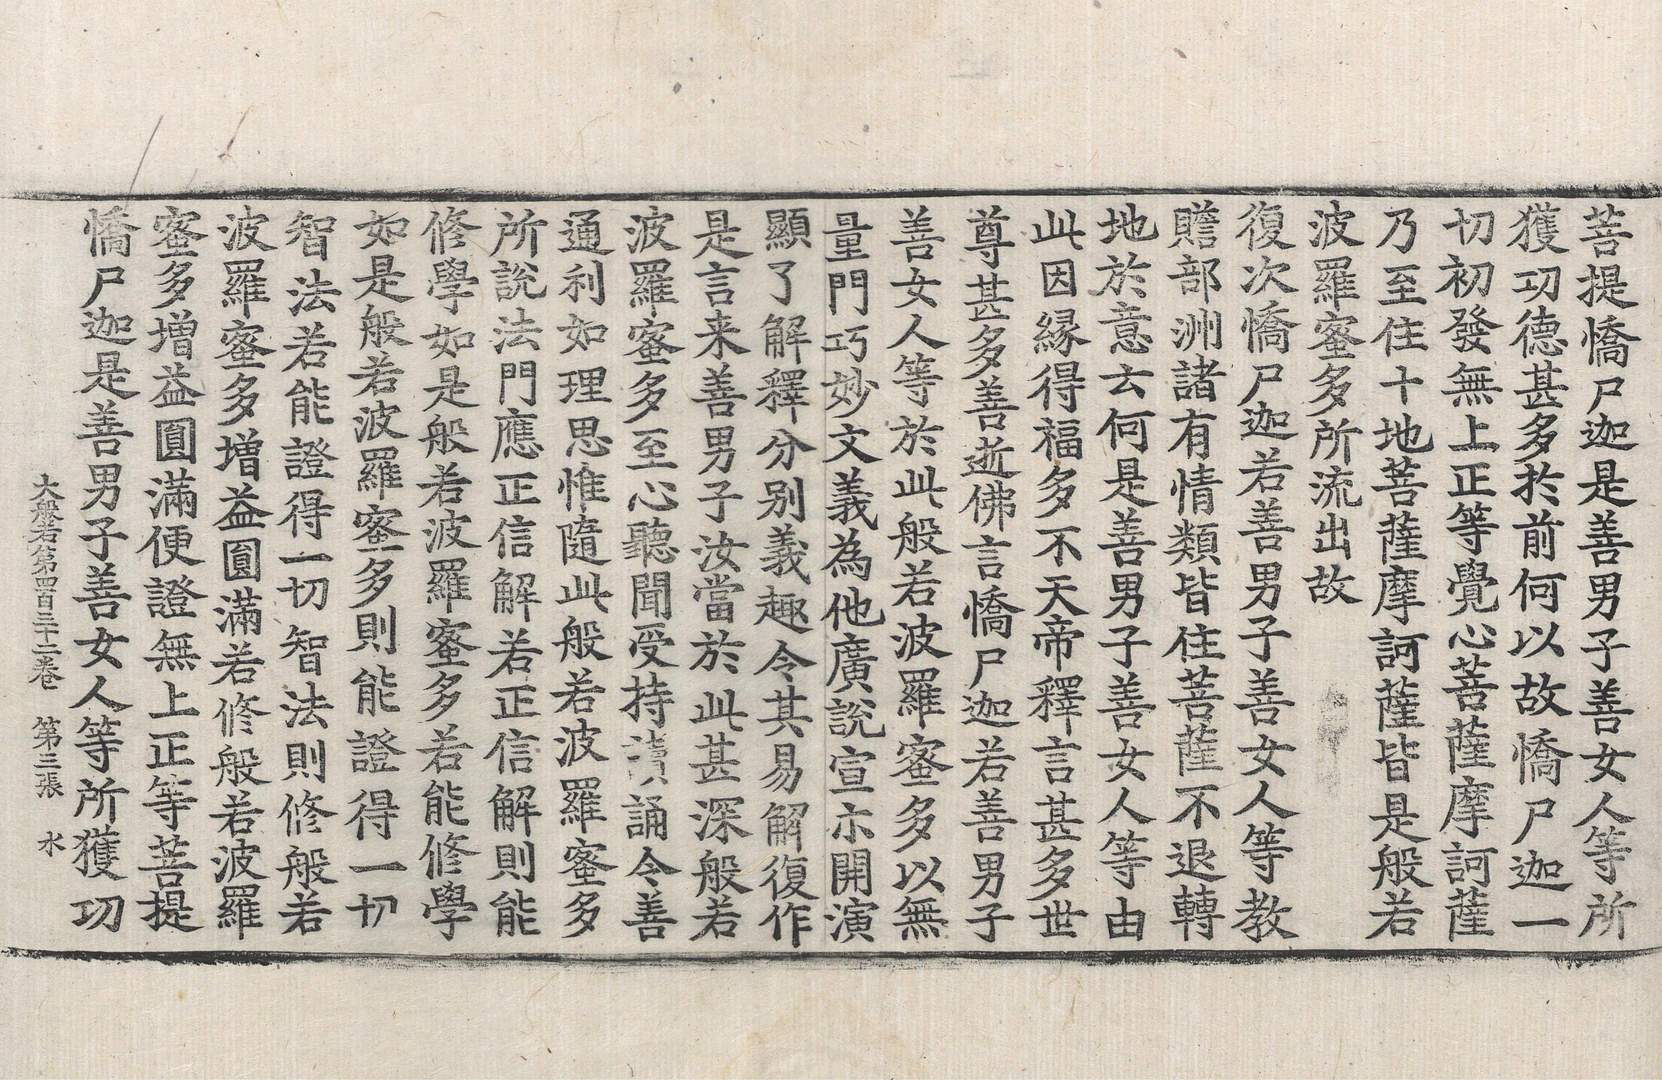 菩提憍尸迦是善男子善女人等所
獲功德甚多於前何以故憍尸迦一
切初發無上正等覺心菩薩摩訶薩
乃至住十地菩薩摩訶薩皆是般若
波羅蜜多所流出故
復次憍尸迦若善男子善女人等教
贍部洲諸有情類皆住菩薩不退轉
地於意云何是善男子善女人等由
此因緣得福多不天帝釋言甚多世
尊甚多善逝佛言憍尸迦若善男子
善女人等於此般若波羅蜜多以無
量門巧妙文義為他廣說宣示開演
顯了解釋分別義趣令其易解復作
是言来善男子汝當於此甚深般若
波羅蜜多至心聽聞受持讀誦令善
通利如理思惟隨此般若波羅蜜多
所說法門應正信解若正信解則能
修學如是般若波羅蜜多若能修學
如是般若波羅蜜多則能證得一切
智法若能證得一切智法則修般若
波羅蜜多增益圓滿若修般若波羅
蜜多增益圓滿便證無上正等菩提
憍尸迦是善男子善女人等所獲功
大般若第四百三十二卷 第三張 水